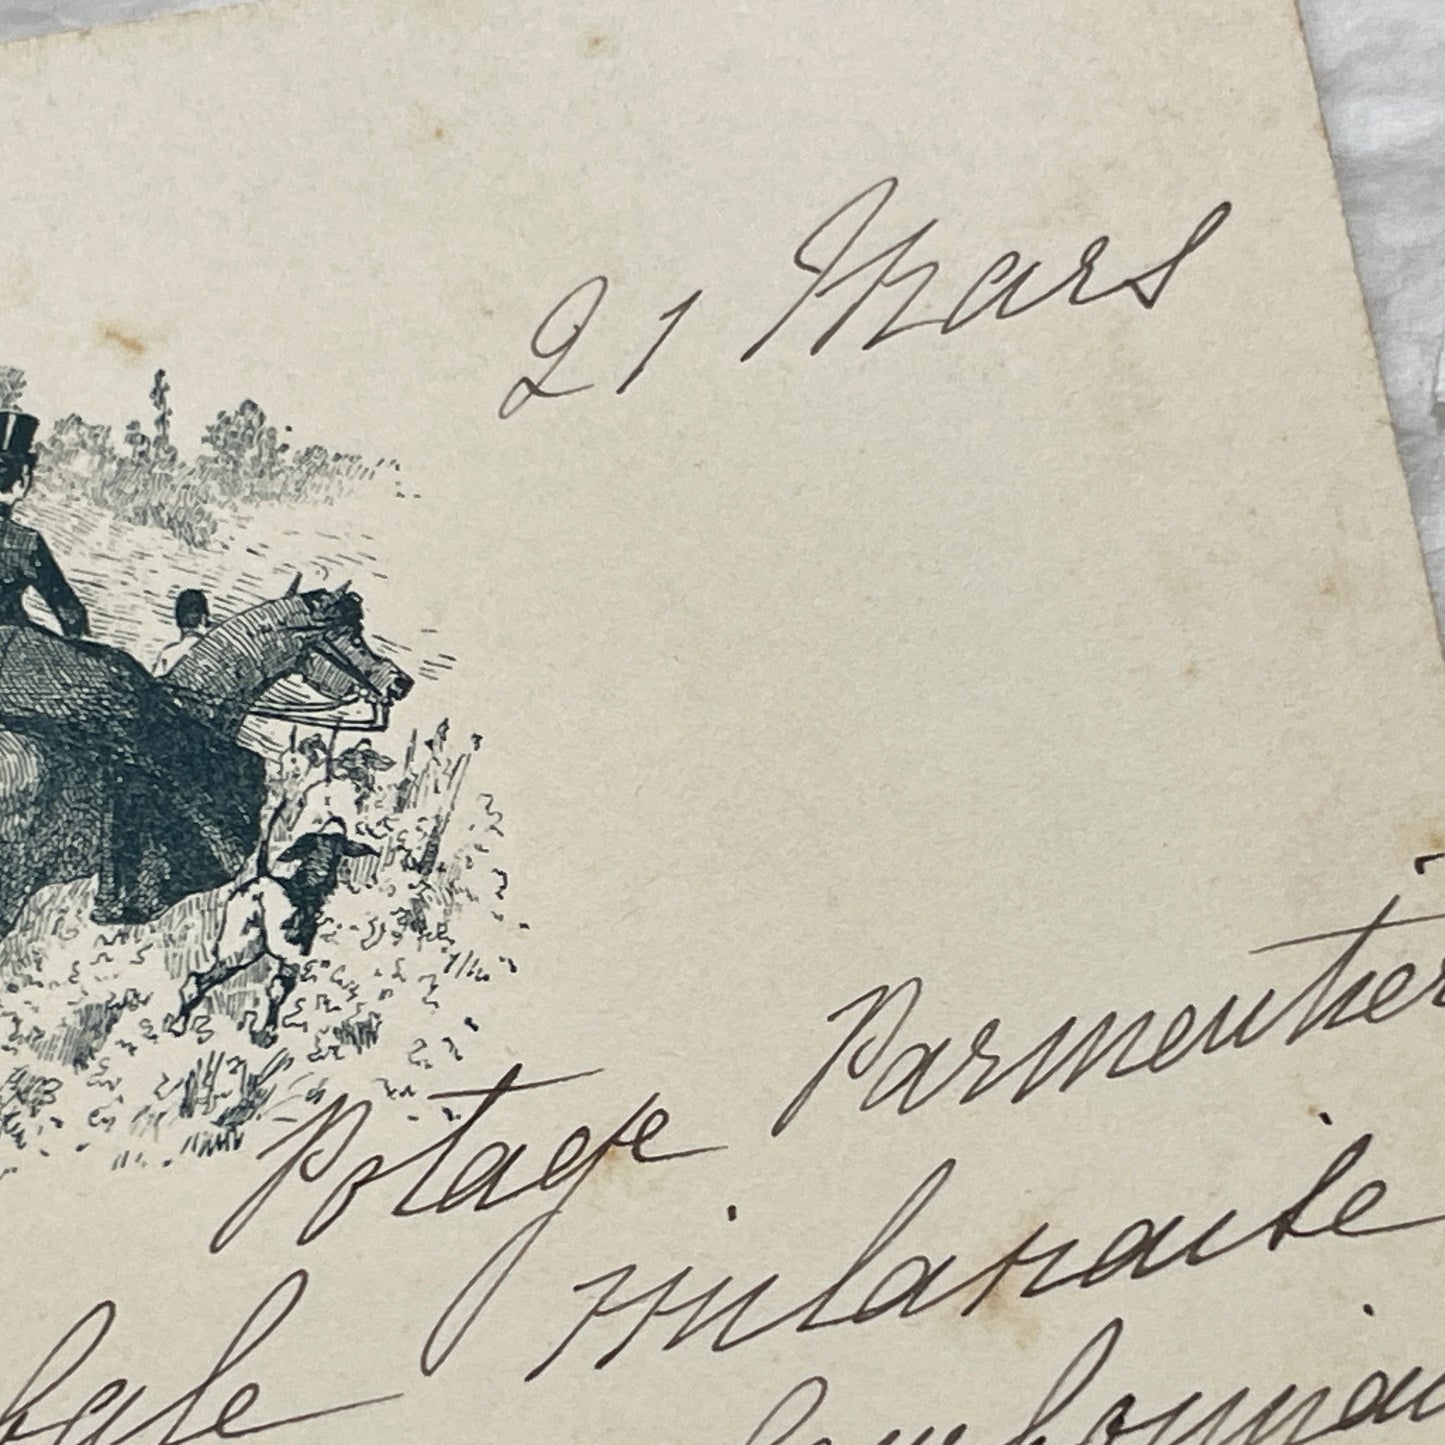 21 Mars
Potage Parmentier
milanaise